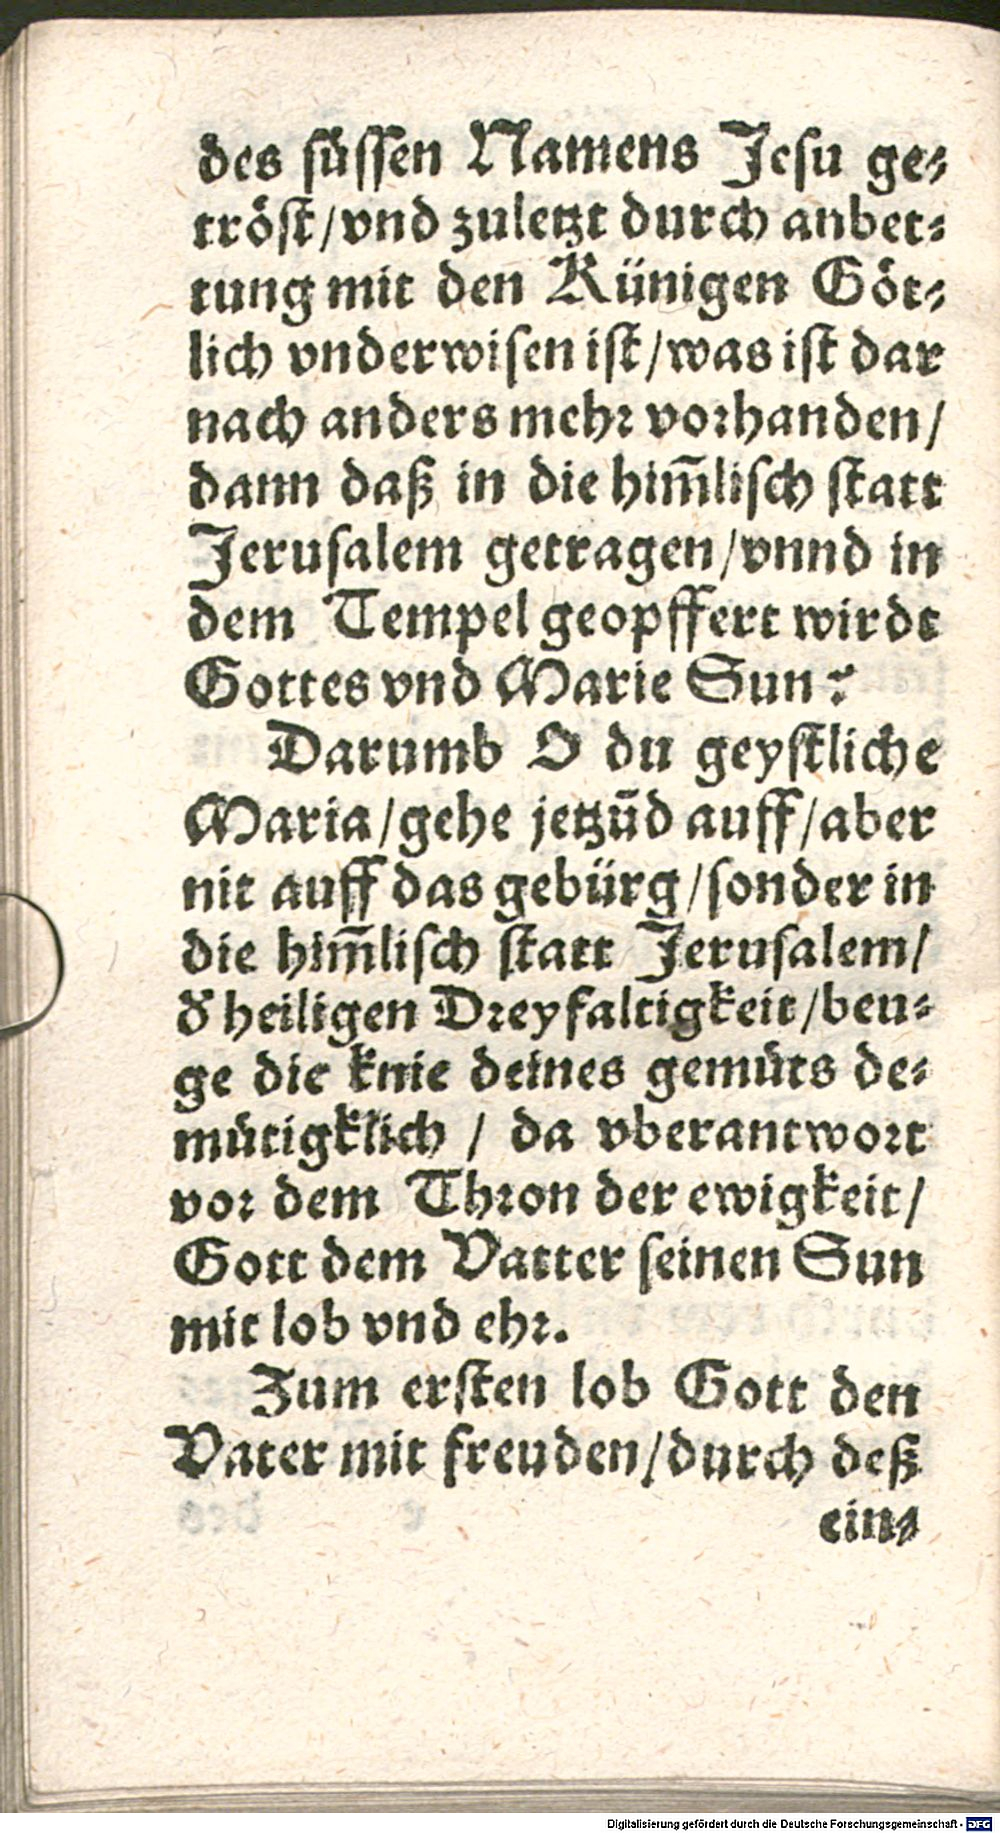 des süssen Namens Jesu ge-
tröst/vnd zuletzt durch anbet-
tung mit den Künigen Göt-
lich vnderwisen ist/was ist dar
nach anders mehr vorhanden/
dann daß in die him̃lisch statt
Jerusalem getragen/vnnd in
dem Tempel geopffert wirdt
Gottes vnd Marie Sun?
Darumb O du geystliche
Maria/gehe jetzūd auff/aber
nit auff das gebürg/sonder in
die him̃lisch statt Jerusalem/
d' heiligen Dreyfaltigkeit/beu-
ge die knie deines gemüts de-
mütigklich / da vberantwort
vor dem Thron der ewigkeit/
Gott dem Vatter seinen Sun
mit lob vnd ehr.
Zum ersten lob Gott den
Vater mit freuden/durch deß
ein-
Digitalisierung gefördert durch die Deutsche Forschungsgemeinschaft - DFG